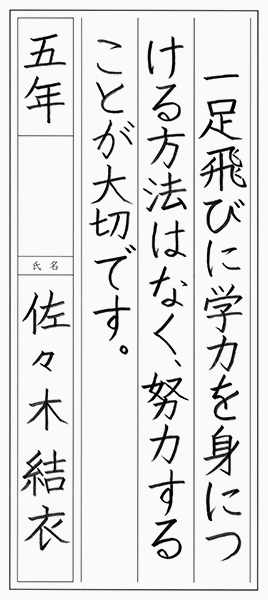 一足飛びに学力を身につ
ける方法はなく、努力する
ことが大切です。
五年
氏名
佐々木結衣